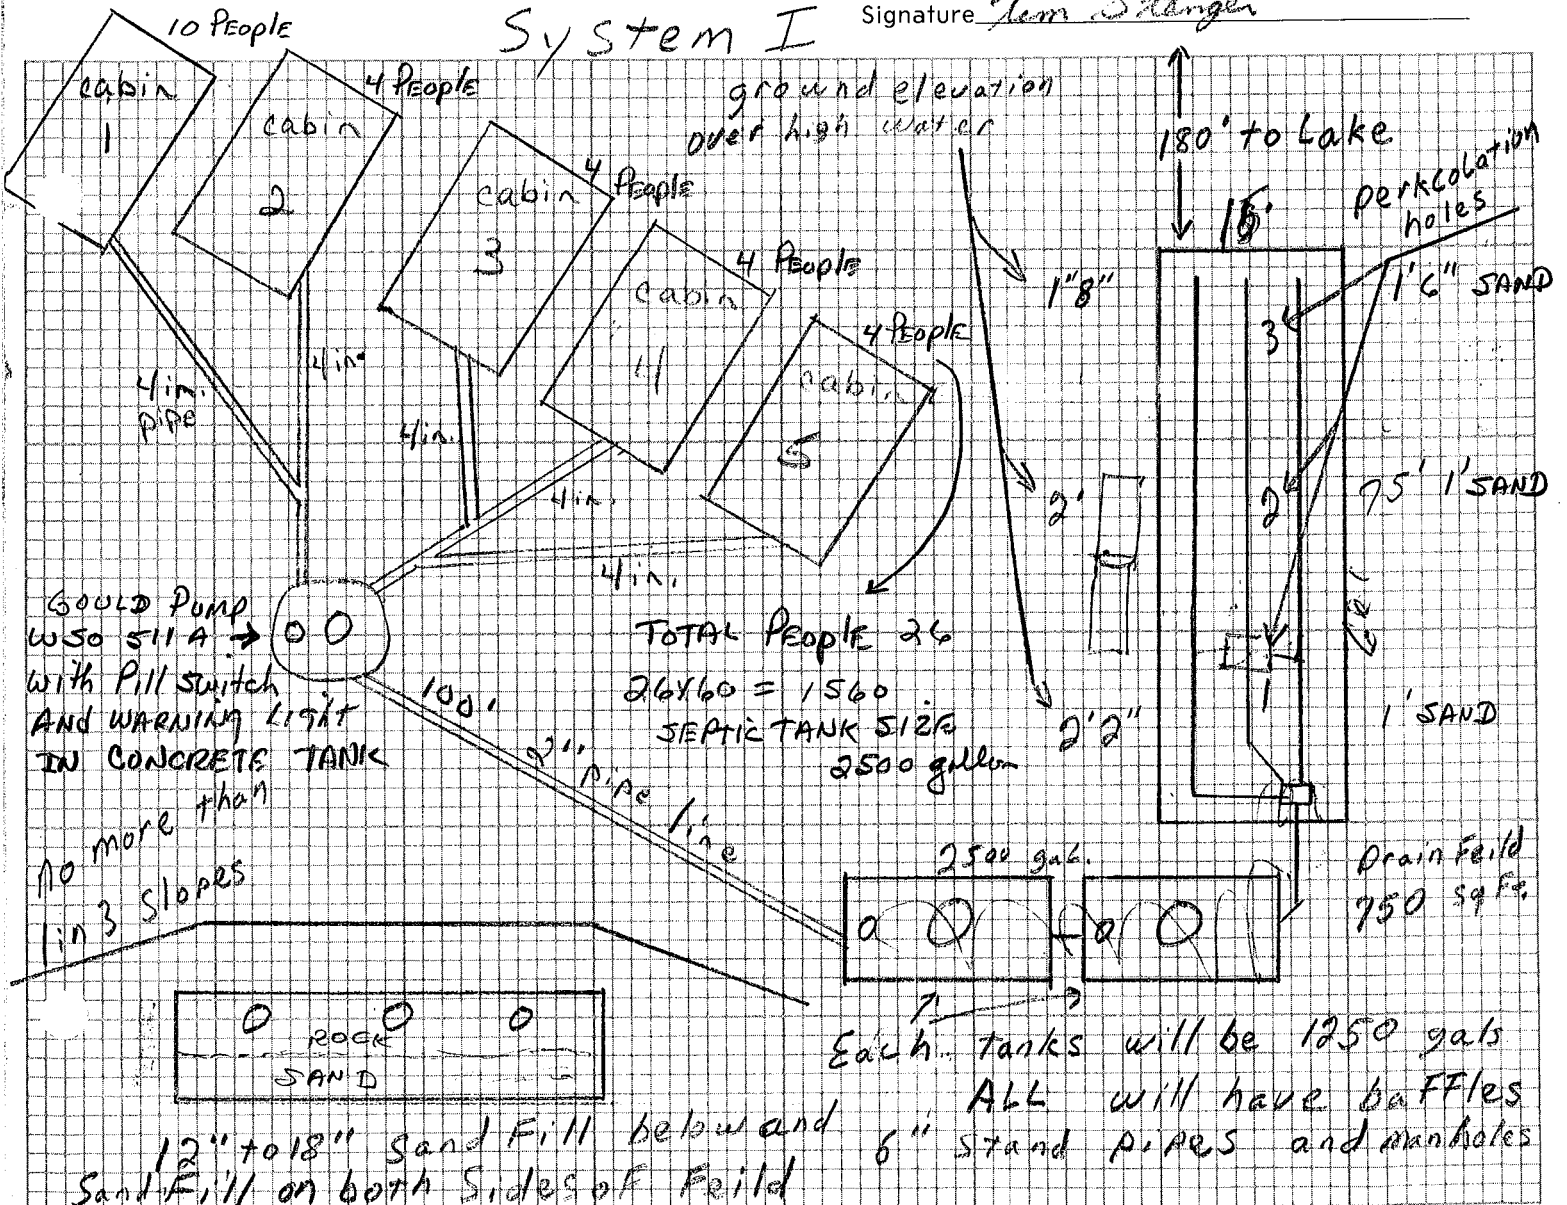 System I
Signature
10 PEOPLE
cabin
1
4 PEOPLE
cabin
2
4 PEOPLE
cabin
3
4 PEOPLE
cabin
4
4 PEOPLE
cabin
5
ground elevation
over high water
1"8"
2'
2'2"
180' to Lake
perkcolation
holes
1'6" SAND
3
75' 1' SAND
2
1
1' SAND
4 in.
pipe
4 in.
4 in.
4 in.
4 in.
GOULD Pump
WSO 511 A
with Pill switch
AND WARNING LIGHT
IN CONCRETE TANK
TOTAL PEOPLE 26
26x60 = 1560
SEPTIC TANK SIZE
2500 gallon
100'
2" pipe line
no more than
1 in 3 slopes
2500 gal.
Drain Feild
750 sq Ft.
ROCK
SAND
Each tanks will be 1250 gals
ALL will have baFFles
6" stand pipes and manholes
12" to 18" Sand Fill below and
Sand Fill on both Sides oF Feild